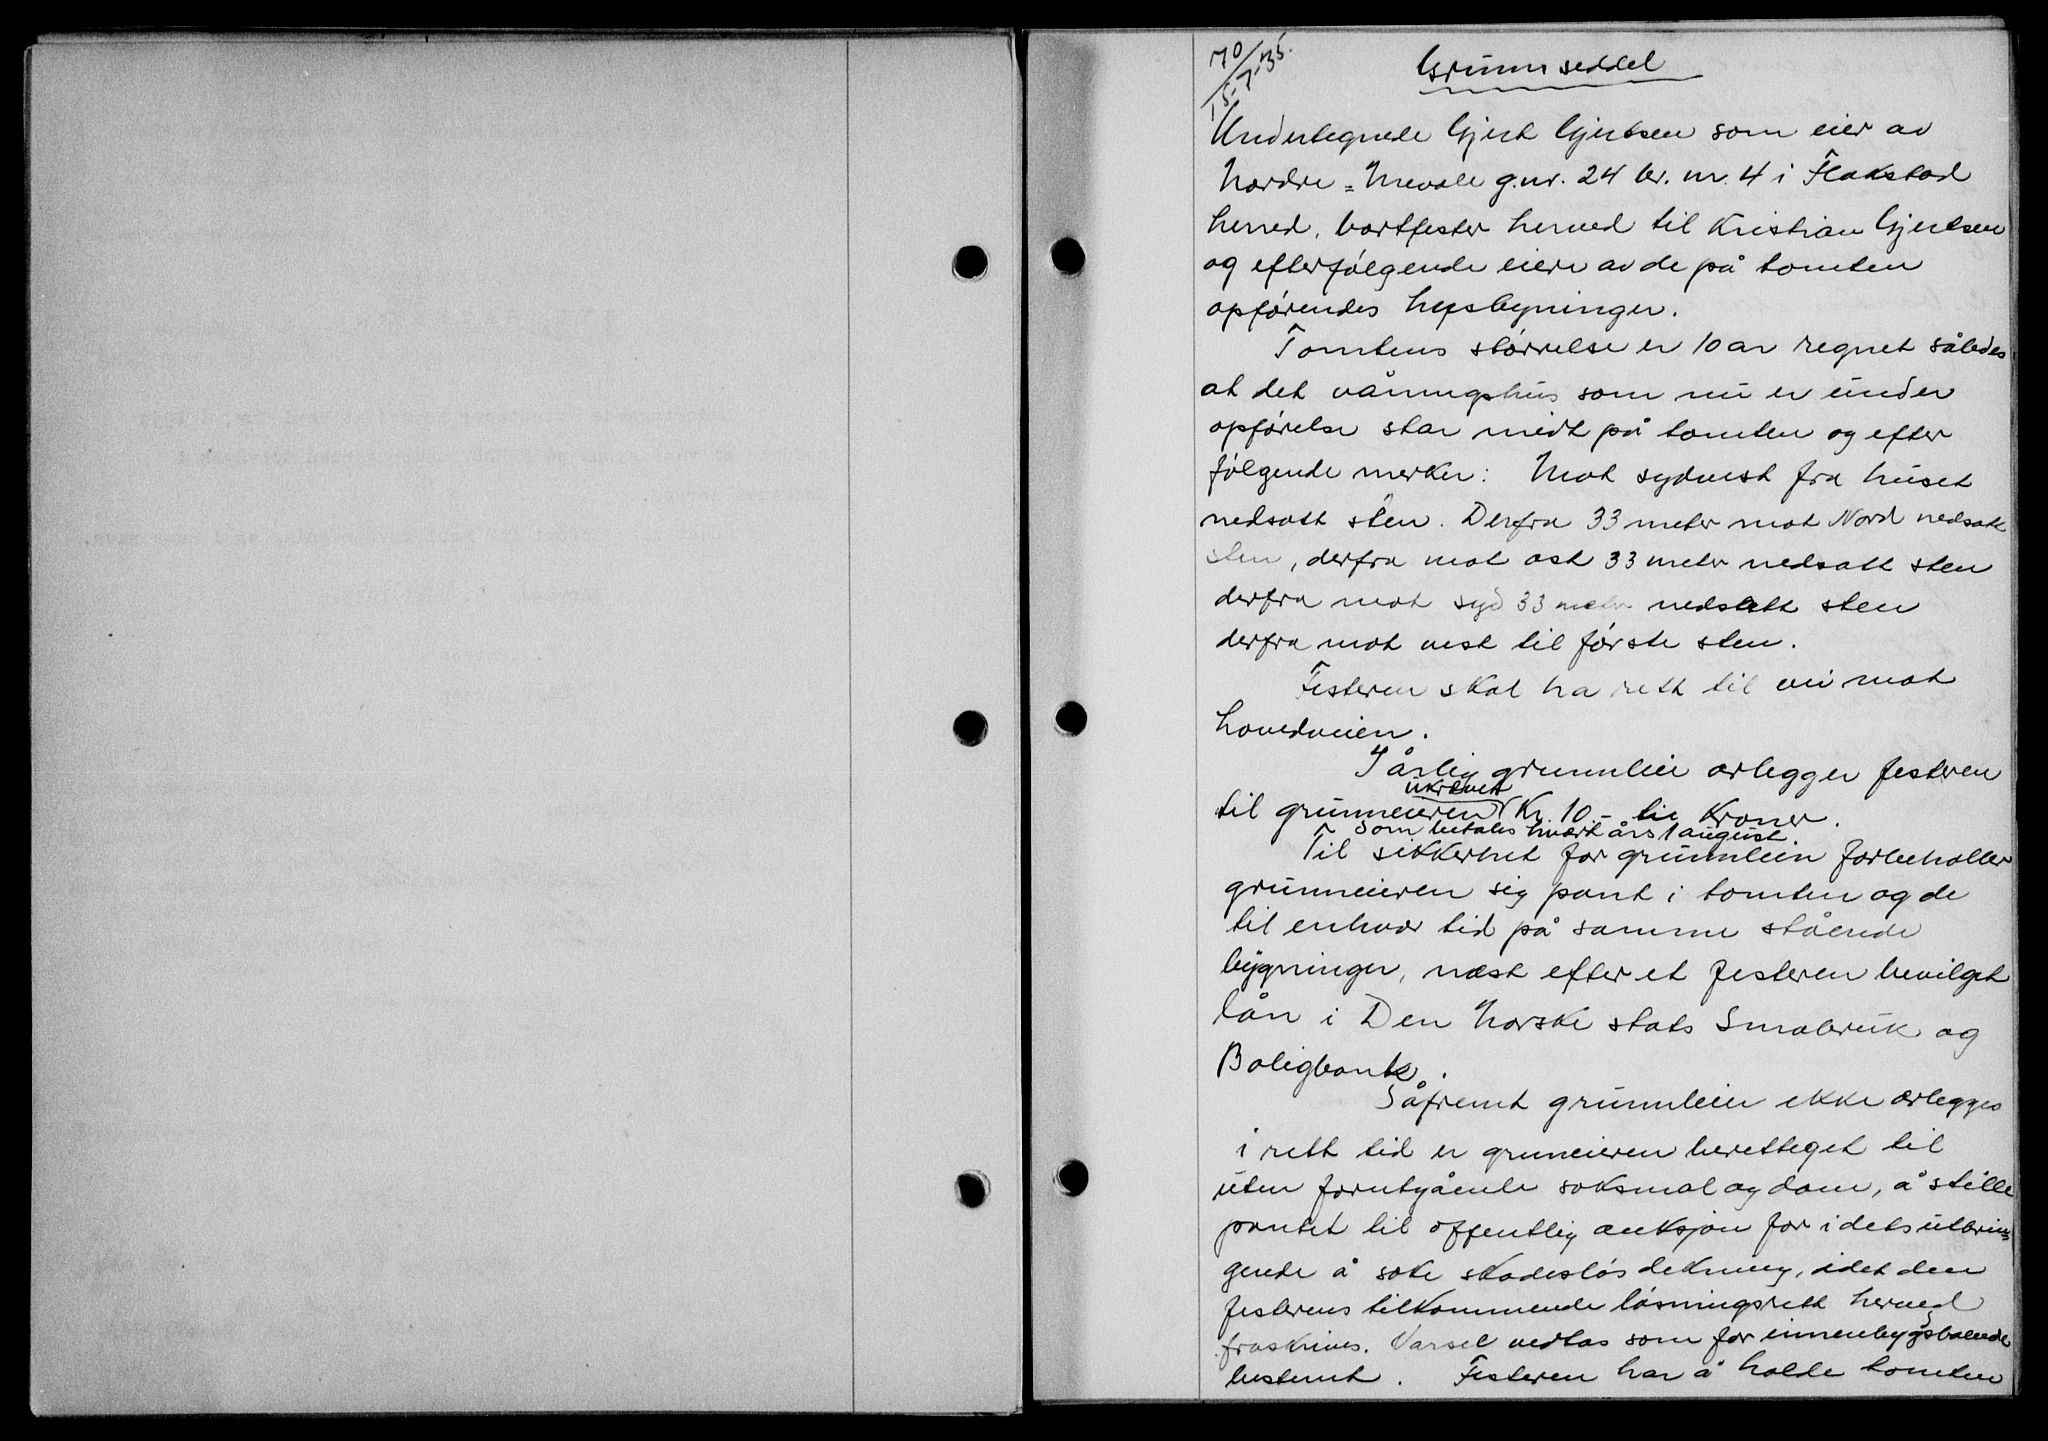 70/15-7-35.
Grunnseddel
Undertegnede Gjert Gjertsen som eier av
Nordre = g.nr. 24 br. nr. 4 i Flakstad
herred, bortfester herved til Kristian Gjertsen
og efterfølgende eiere av de på tomten
opførendes husbyninger.
Tomtens størrelse er 10 ar regnet således
at det våningshus som nu er under
opførelse står midt på tomten og efter
følgende merker: Mot sydvest fra huset
nedsatt sten. Derfra 33 meter mot Nord nedsatt
sten, derfra mot ost 33 meter nedsatt sten
derfra mot syd 33 meter nedsatt sten
derfra mot vest til første sten.
Festeren skal ha rett til vei mot
hovedveien.
I årlig grunnleie erlegger festeren
ukrævet
til grunneieren Kr. 10.- ti Kroner.
som betales hvert års 1 august.
Til sikkerhet for grunnleien forbeholler
grunneieren sig pant i tomten og de
til enhver tid på samme stående
bygninger, næst efter et festeren bevilget
lån i Den Norske stats Småbruk og
Boligbank.
Såfremt grunnleien ikke erlegges
i rett tid er gruneieren berettiget til
uten forutgående soksmal og dom, å stille
pantet til offentlig auksjon for i dets utbrin=
gende å soke skadesløs dekning, idet den
festerens tilkommende løsningsrett herved
fraskrives. Varsel vedtas som for innenbygsboende
bestemt. Festeren har å holde tomten